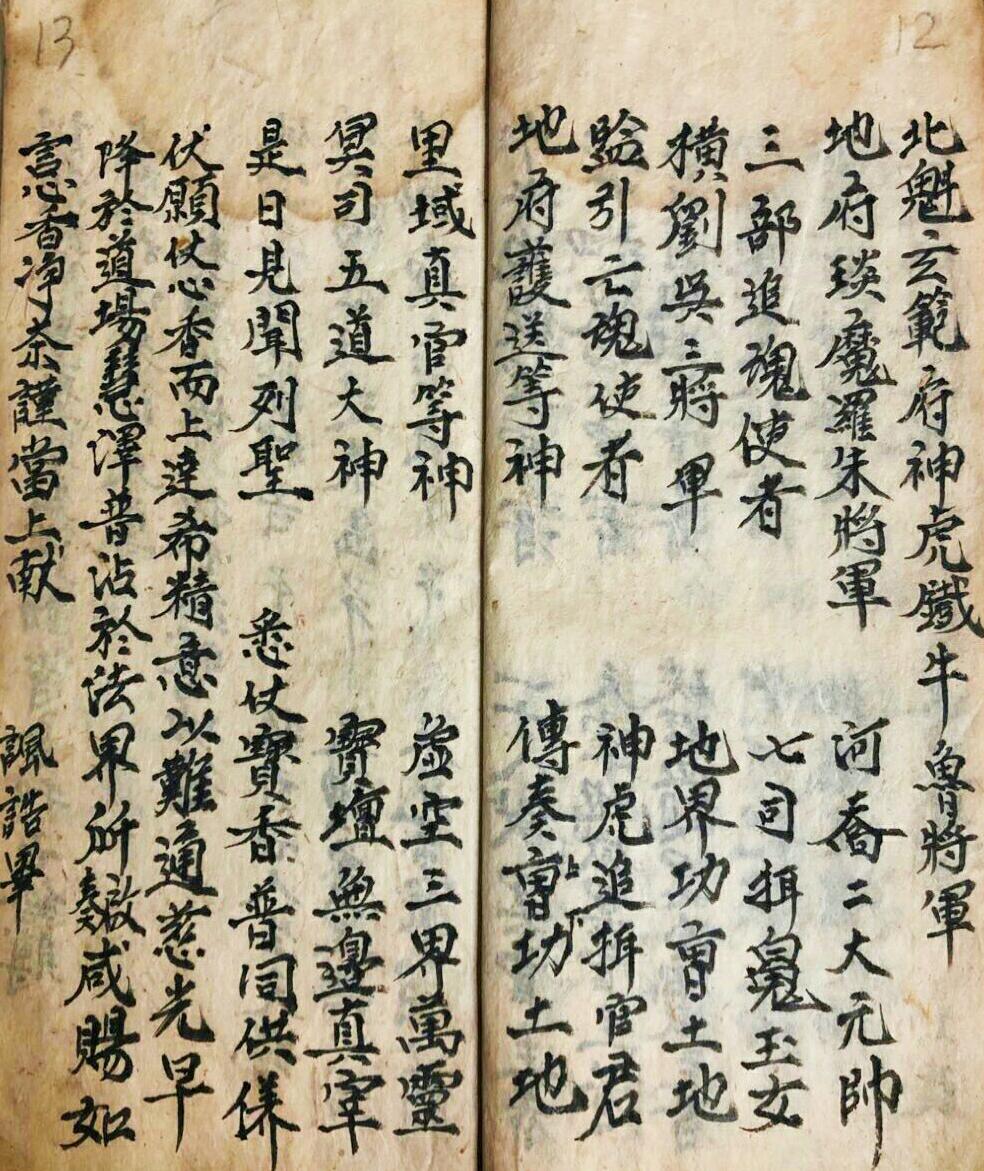 12
北魁玄範府神虎鐵牛魯將軍
地府琰魔羅朱將軍 河喬二大元帥
三部追魂使者 七司搑魂玉女
橫劉吳三將軍 地界功曹土地
監引亡魂使者 神虎追搑官君
地府護送等神 傳奏上下曹功土地
13
里域真官等神 虛空三界萬靈
冥司五道大神 寶壇無邊真宰
是日見聞列聖 悉仗寶香普同供養
伏願仗心香而上達希精意以難通慈光早
降於道場慧澤普沾於法界所啟奏咸賜如
言心香淨茶謹當上献 諷誥畢